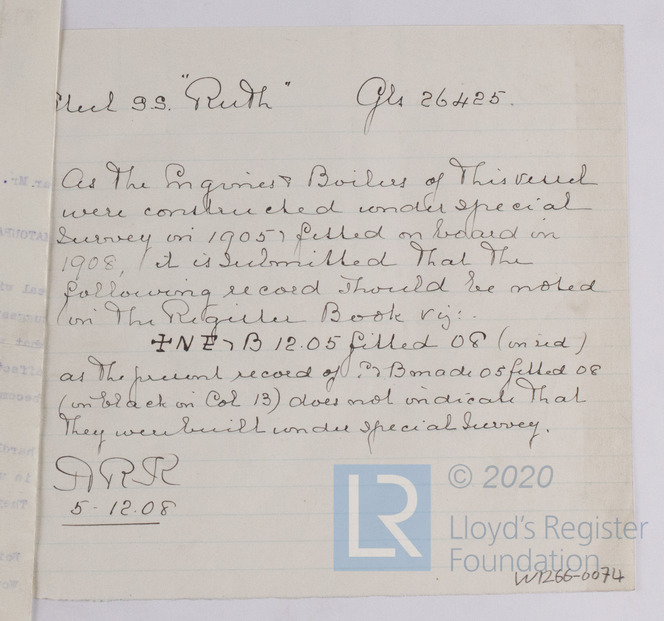 Steel S.S. "Ruth" Gls 26425.
As the Engines & Boilers of this vessel
were constructed under special
Survey in 1905 & fitted on board in
1908, it is submitted that the
following record should be noted
in the Register Book viz:.
NE & B 12.05 fitted 08 (in red)
as the present record of & B made 05 fitted 08
(in black in Col 13) does not indicate that
they were built under special survey.
5-12.08
© 2020
LR
Lloyd's Register
Foundation
W1266-0074